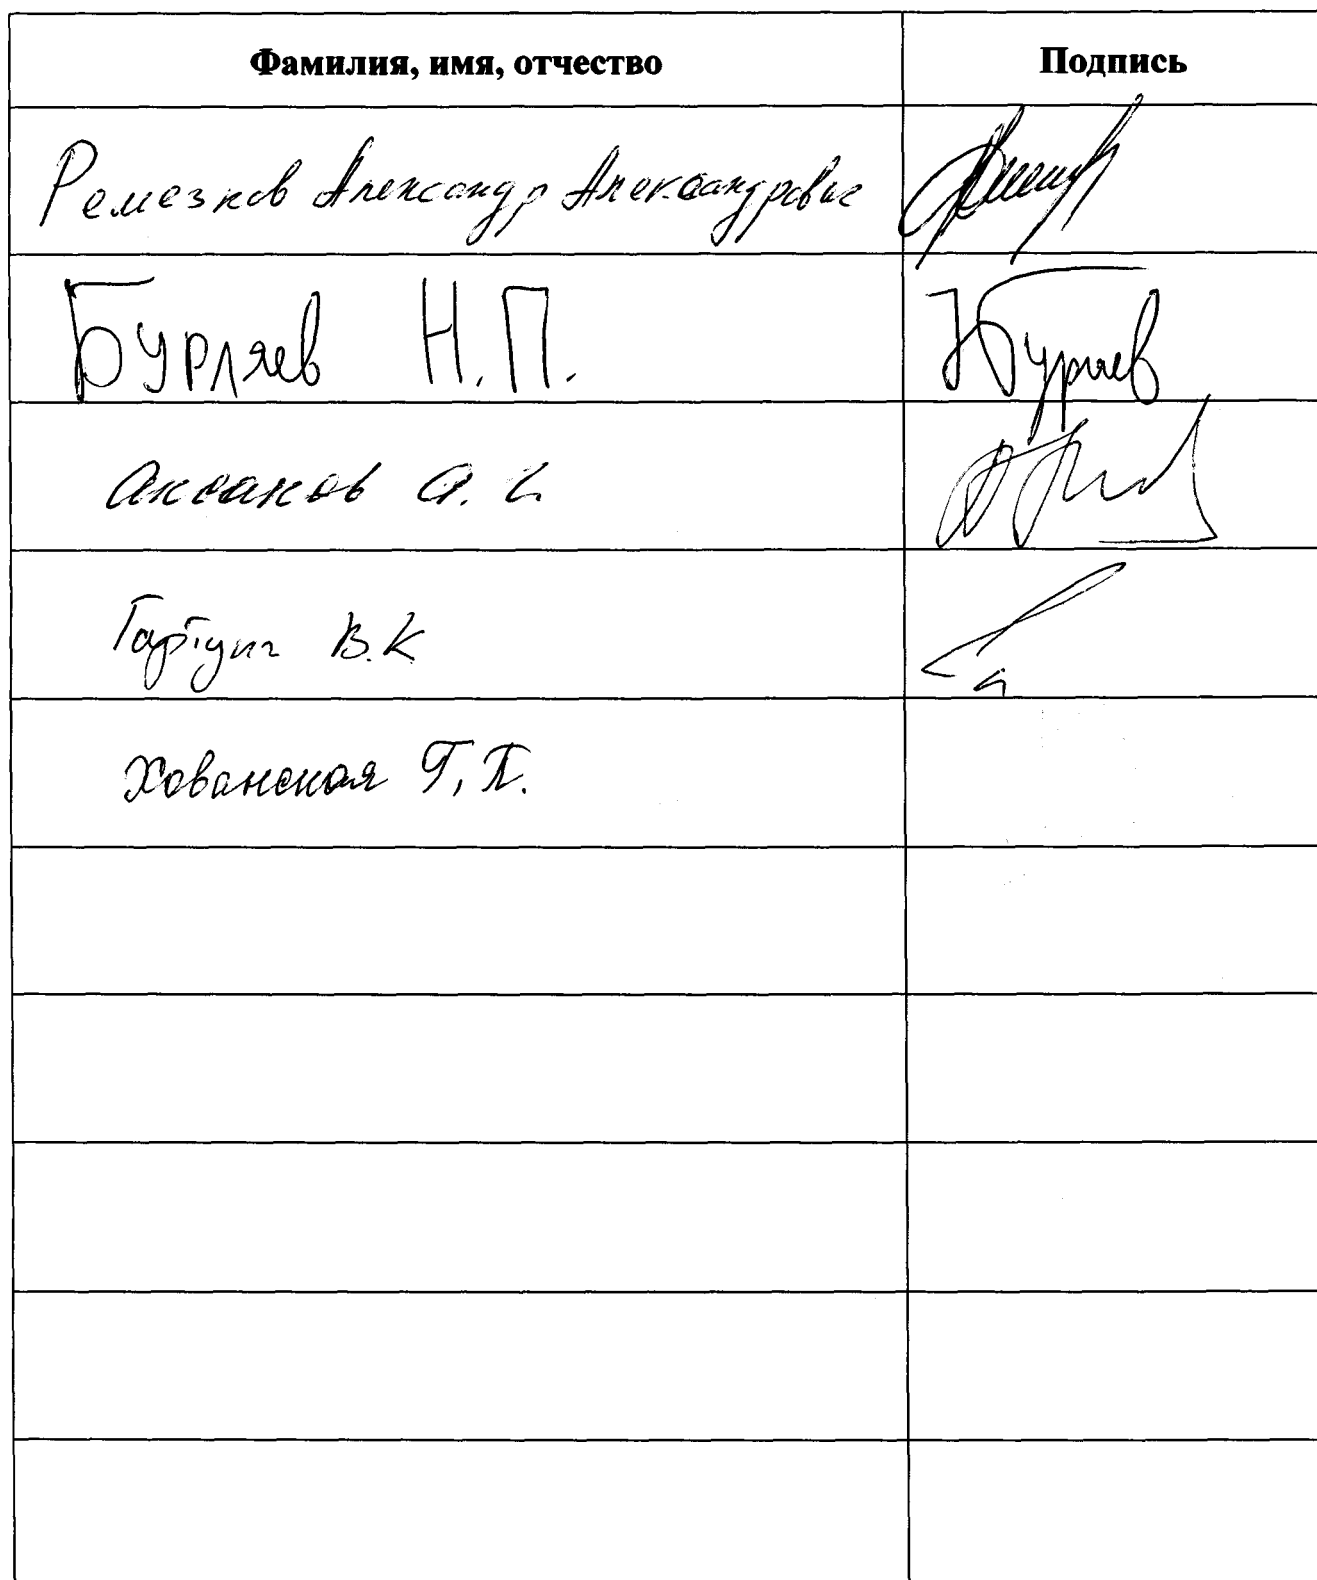 Фамилия, имя, отчество Подпись
Ремезков Александр Александрович
Бурляев Н.П. НБурляев
Аксаков А.
Гартунг В.К
Хованская Г.П.